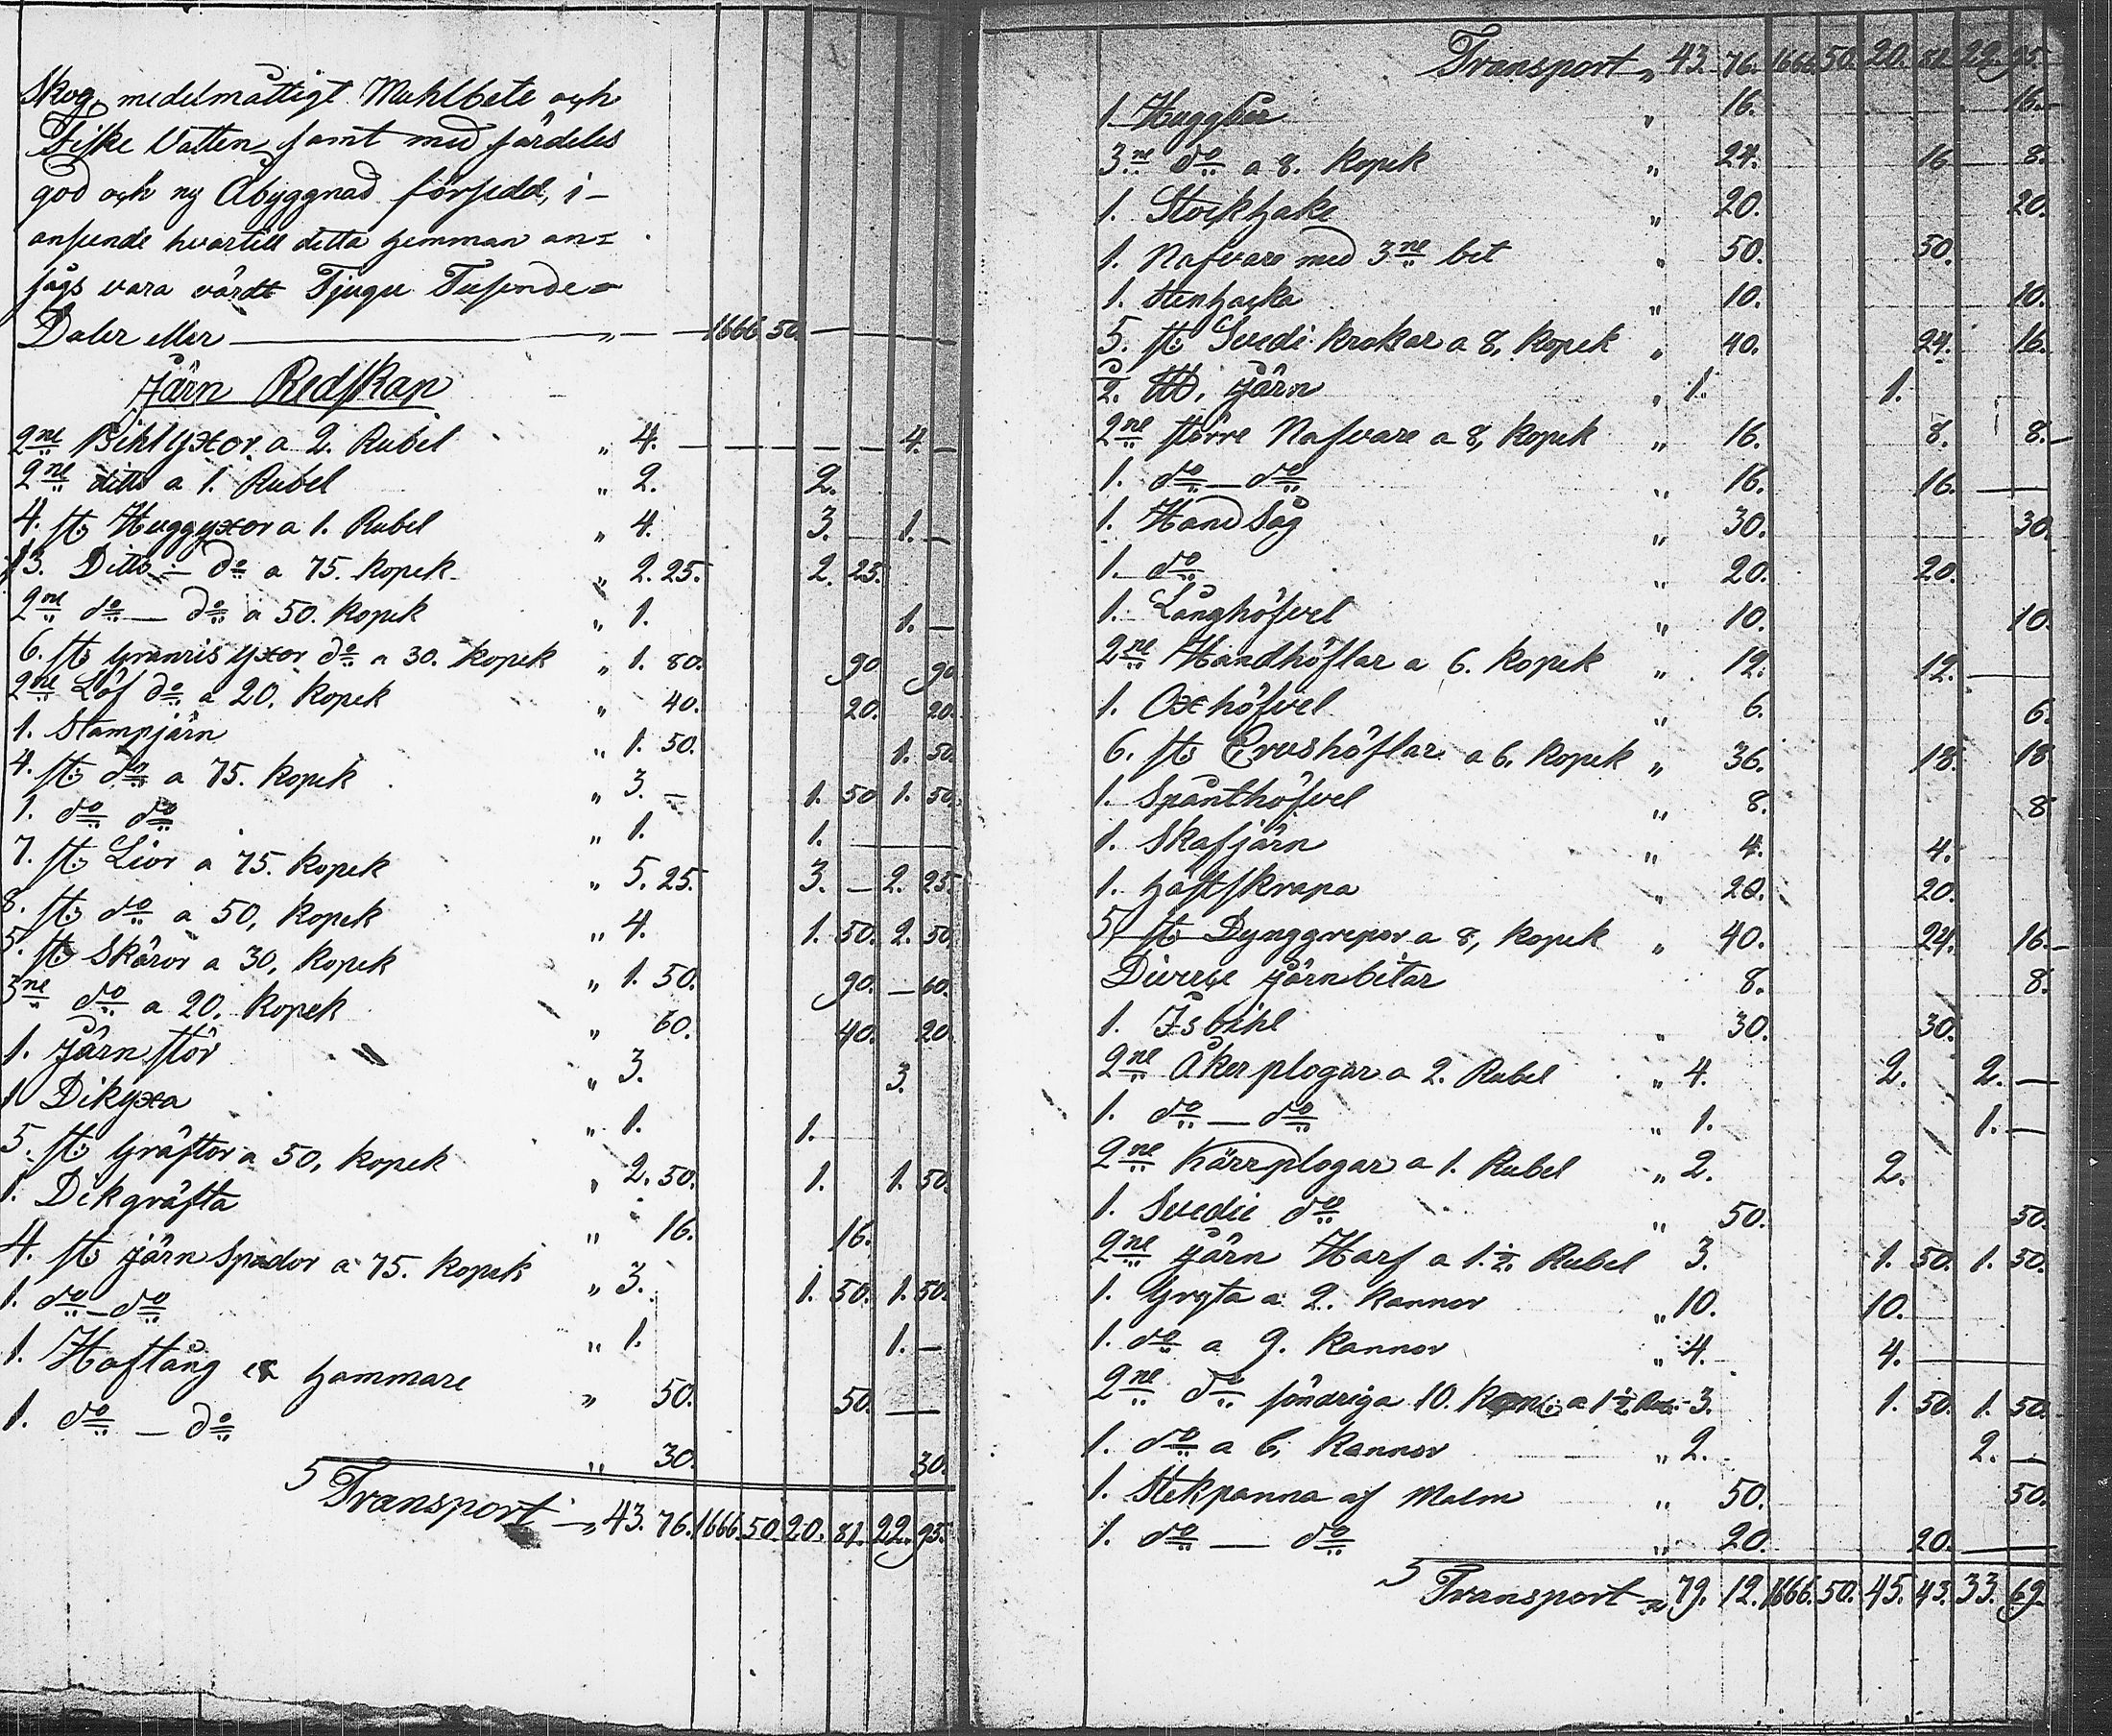 Skog, medelmåttigt Muhlbete och
Fiske Vatten samt med särdeles
god och ny Åbyggnad försedd, i-
anseende hvartill detta hemman an=
sågs vara värdt Tjugu Tusende
Daler eller — „ — 1666. 50. —
Järn Redskap
2ne Bihlyxor a 2. Rubel „ 4. — 4. —
2ne ditto a 1. Rubel „ 2. 2.
4. st: Huggyxor a 1. Rubel „ 4. 3. 1. —
3. Ditto — do a 75. kopek „ 2. 25. 2. 25.
2ne do — do a 50. kopek „ 1. 1. —
6. st: Granris yxor do a 30. kopek „ 1. 80. 90 90.
2ne Löf do a 20. kopek „ 40. 20. 20.
1. Stampjärn „ 1. 50. 1. 50.
4. st: do a 75. kopek „ 3. — 1. 50 1. 50.
1. do do „ 1. 1. —
7. st: Lior a 75. kopek „ 5. 25. 3. — 2. 25.
8. st: do a 50, kopek „ 4. 1. 50. 2. 50.
5. st: Skäror a 30, kopek „ 1. 50. 90. — 60.
3ne do a 20. kopek „ 60. 40. 20.
1. Järn stör „ 3. 3.
1 Dikyxa „ 1. 1.
5. st: Gräftor a 50, kopek „ 2. 50. 1. 1. 50.
1. Dikgräfta „ 16. 16.
4. st: järn Spador a 75. kopek „ 3. 1. 50. 1. 50.
1. do — do „ 1. 1. —
1. Hoftång hammare „ 50. 50. —
1. do — do „ 30. 30.
Transport — „ 43. 76. 1666. 50. 20. 81. 22. 95.
Transport „ 43. 76. 1666. 50. 20. 81. 22. 95.
1. „ 16. 16. —
3ne do a 8. kopek „ 24. 16 8.
1. Stockhake „ 20. 20.
1. Nafvare med 3ne bet „ 50. 50.
1. Stenhacka „ 10. 10.
5. st: Svedi krokar a 8. kopek „ 40. 24. 16.
2. järn „ 1. 1.
2ne större Nafvare a 8, kopek „ 16. 8. 8. —
1. do — do „ 16. 16. —
1. Hand Såg „ 30. 30.
1. do „ 20. 20.
1. Långhöfvel „ 10. 10.
2ne Handhöflar a 6. kopek „ 12. 12. —
1. Oxhöfvel „ 6. 6.
6. st: höflar a 6. kopek „ 36. 18. 18
1. Spånthöfvel „ 8. 8
1. Skafjärn „ 4. 4.
1. Häftskrapa „ 20. 20.
5 st: Dynggrepor a 8, kopek „ 40. 24. 16. —
Diverse järnbitar 8. 8.
1. Isbihl „ 30. 30.
2ne Åker plogar a 2. Rubel „ 4. 2. 2. —
1. do — do „ 1. 1. —
2ne Kärrplogar a 1. Rubel „ 2. 2.
1. Svedie do „ 50. 50.
2ne järn Harf a 1.½. Rubel 3. 1. 50. 1. 50.
1. Gryta a 2. kannor „ 10. 10.
1. do a 9. kannor „ 4. 4. —
2ne do söndriga 10. kan: a 1½ — 3. 1. 50. 1. 50.
1. do a 6, kannor „ 2. 2. —
1. Stekpanna af Malm „ 50. 50.
1. do — do „ 20. 20. —
Transport „ 79. 12. 1666. 50. 45. 43. 33. 69.